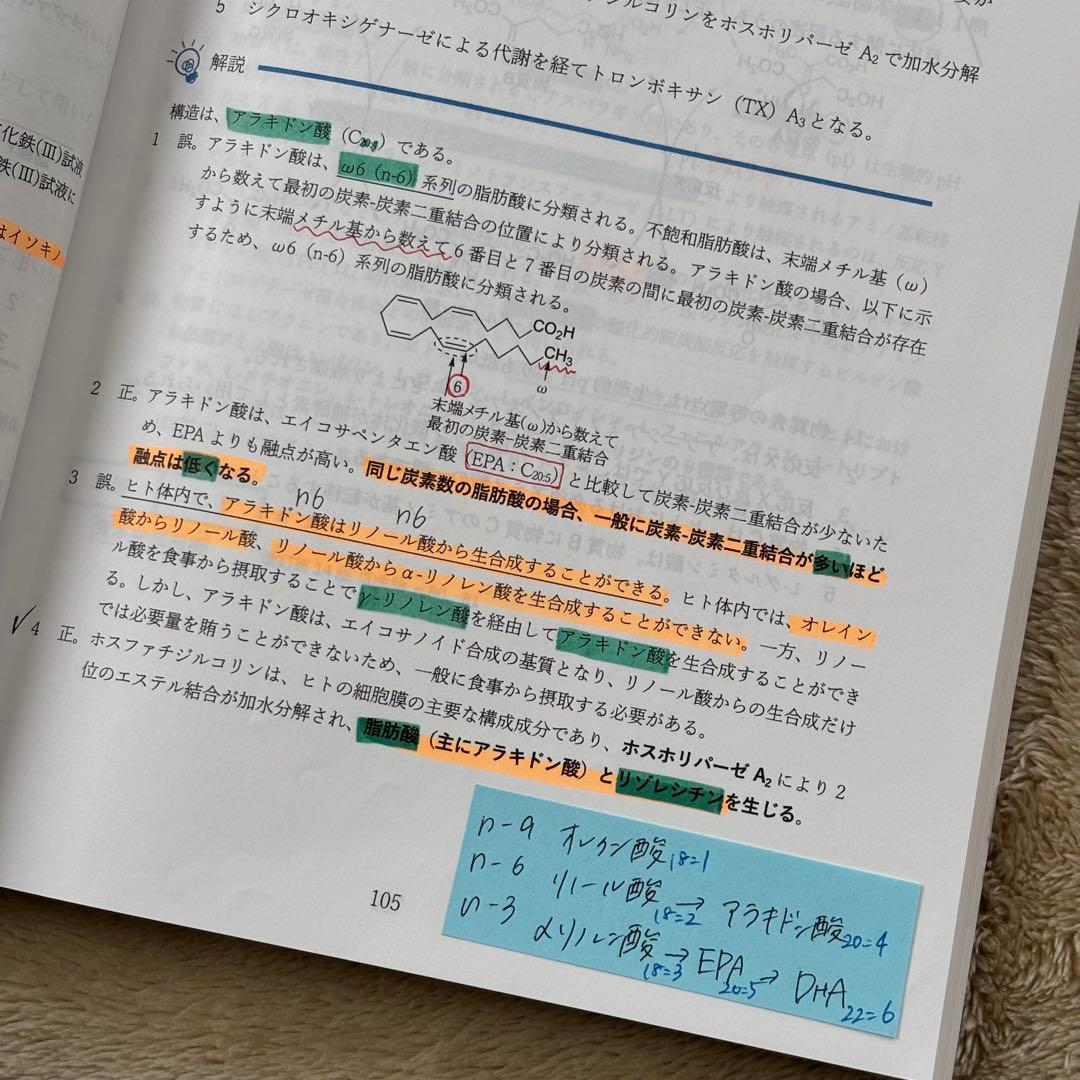 ジルコリンをホスホリパーゼ A₂ で加水分解
5 シクロオキシゲナーゼによる代謝を経てトロンボキサン（TX）A₃となる。
解説
構造は、アラキドン酸（C₂₀:₄）である。
1 誤。アラキドン酸は、ω6（n-6）系列の脂肪酸に分類される。不飽和脂肪酸は、末端メチル基（ω）
から数えて最初の炭素-炭素二重結合の位置により分類される。アラキドン酸の場合、以下に示
すように末端メチル基から数えて6番目と7番目の炭素の間に最初の炭素-炭素二重結合が存在
するため、ω6（n-6）系列の脂肪酸に分類される。
CO₂H
CH₃
6 ω
末端メチル基(ω)から数えて
最初の炭素-炭素二重結合
2 正。アラキドン酸は、エイコサペンタエン酸（EPA：C₂₀:₅）と比較して炭素-炭素二重結合が少ないた
め、EPAよりも融点が高い。同じ炭素数の脂肪酸の場合、一般に炭素-炭素二重結合が多いほど
融点は低くなる。
n6 n6
3 誤。ヒト体内で、アラキドン酸はリノール酸から生合成することができる。ヒト体内では、オレイン
酸からリノール酸、リノール酸からα-リノレン酸を生合成することができない。一方、リノー
ル酸を食事から摂取することでγ-リノレン酸を経由してアラキドン酸を生合成することができ
る。しかし、アラキドン酸は、エイコサノイド合成の基質となり、リノール酸からの生合成だけ
では必要量を賄うことができないため、一般に食事から摂取する必要がある。
✓4 正。ホスファチジルコリンは、ヒトの細胞膜の主要な構成成分であり、ホスホリパーゼ A₂ により2
位のエステル結合が加水分解され、脂肪酸（主にアラキドン酸）とリゾレシチンを生じる。
105
n-9 オレイン酸 18=1
n-6 リノール酸 18=2 → アラキドン酸 20=4
n-3 αリノレン酸 18=3 → EPA 20=5 → DHA 22=6
化鉄(Ⅲ)試液
鉄(Ⅲ)試液に
はイソキノ